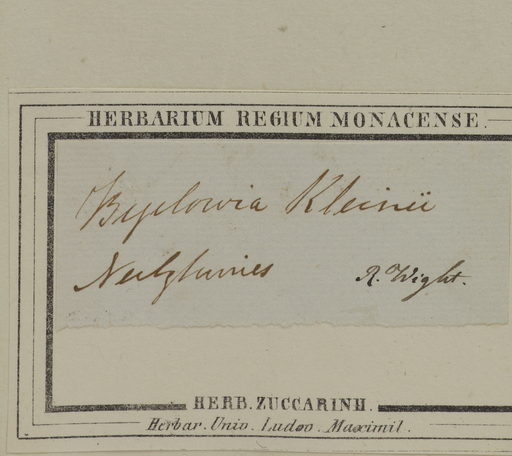 HERBARIUM REGIUM MONACENSE.
Bigelowia Kleinii
R. Wight.
HERB. ZUCCARINII.
Herbar. Univ. Ludov. Maximil.